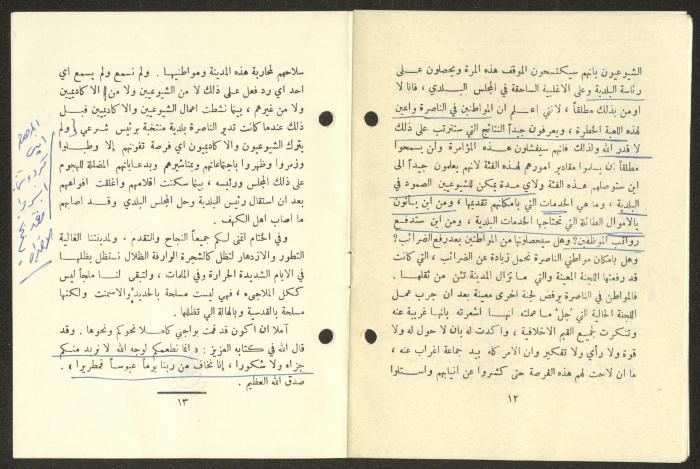 الشيوعيون بانهم سيكتسحون الموقف هذه المرة ويحصلون على
رئاسة البلدية وعلى الاغلبية الساحقة في المجلس البلدي ، فانا لا
اومن بذلك مطلقاً ، لأنني اعلم ان المواطنين في الناصرة واعين
لهذه اللعبة الخطرة ، ويعرفون جيداً النتائج التي ستترتب على ذلك
لا قدر الله ولذلك فانهم سيفشلون هذه المؤامرة ولن يسمحوا
مطلقاً بان يسلموا مقادير امورهم لهذه الفئة لأنهم يعلمون جيداً الى
اين ستوصلهم هذه الفئة ولاي مدة يمكن للشيوعيين الصمود في
البلدية ، وما هي الخدمات التي بامكانهم تقديمها ، ومن اين يأتون
بالاموال الطائلة التي تحتاجها الخدمات البلدية ، ومن اين ستدفع
رواتب الموظفين؟ وهل سيحصلونها من المواطنين بعد رفع الضرائب؟
وهل بامكان مواطني الناصرة تحمل زيادة عن الضرائب ، التي كانت
قد رفعتها اللجنة المعينة والتي ما تزال المدينة تئن من ثقلها .
فالمواطن في الناصرة يرفض لجنة اخرى معينة بعد ان جرب عمل
اللجنة الحالية التي جُل ما عملته انها اشعرته بانها غريبة عنه
وتنكرت لجميع القيم الاخلاقية ، واكدت له بان لا حول له ولا
قوة ولا رأي ولا تفكير وان الامر كله بيد جماعة اغراب عنه ،
ما ان لاحت لهم هذه الفرصة حتى كشروا عن انيابهم واستلوا
١٢
سلاحهم لمحاربة هذه المدينة ومواطنيها . ولم نسمع ولم يسمع اي
احد اي رد فعل على ذلك لا من الشيوعيين ولا من الاكاديميين
ولا من غيرهم ، بينما نشطت اعمال الشيوعيين والاكاديميين قبل
ذلك عندما كانت تدير الناصرة بلدية منتخبة برئيس شرعي ولم
يترك الشيوعيون والاكاديميون اي فرصة تفوتهم إلا وطبلوا
وزمروا وظهروا باجتماعاتهم وبمناشيرهم وبدعاياتهم المضللة للهجوم
على ذلك المجلس ورئيسه ، بينما سكتت اقلامهم واغلقت افواههم
بعد ان استقال رئيس البلدية وحل المجلس البلدي وقد اصابهم
ما اصاب اهل الكهف .
وفي الختام اتمنى لكم جميعاً النجاح والتقدم . ولمدينتنا الغالية
التطور والازدهار لتظل كالشجرة الوارفة الظلال نستظل بظلها
في الايام الشديدة الحرارة وفي الملمات ، ولتبقى لنا ملجأ ليس
ككل الملاجىء ، فهي ليست مسلحة بالحديد والاسمنت ولكنها
مسلحة بالقدسية وبالهالة الي تظللها .
آملا ان اكون قد قمت بواجبي كاملا نحوكم ونحوها . وقد
قال الله في كتابه العزيز : « انما نطعمكم لوجه الله لا نريد منكم
جزاء ولا شكورا ، إنا نخاف من ربنا يوماً عبوساً قمطريرا » .
صدق الله العظيم .
١٣